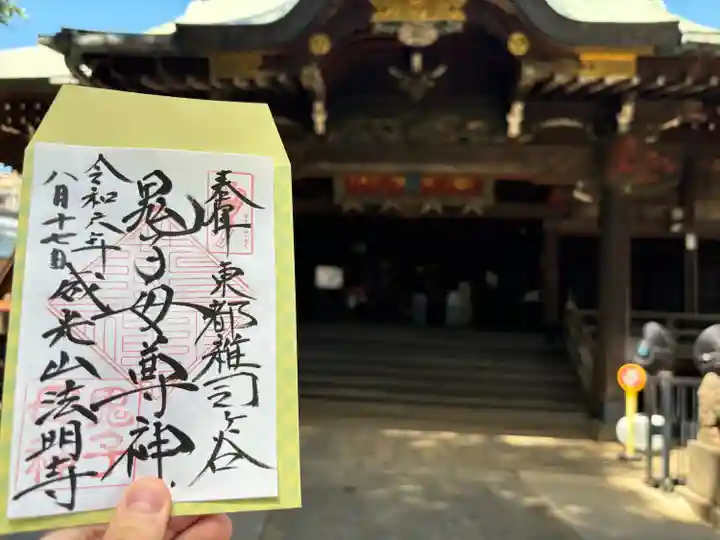 奉拝 東都雑司ヶ谷
鬼子母尊神
令和六年
八月十七日 威光山法明寺